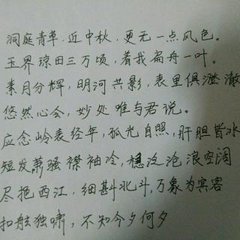 洞庭青草，近中秋，更无一点风色。
玉界琼田三万顷，着我扁舟一叶。
素月分辉，明河共影，表里俱澄澈
悠然心会，妙处难与君说。
应念岭表经年，孤光自照，肝胆皆冰
短发萧骚襟袖冷，稳泛沧浪空阔
尽挹西江，细斟北斗，万象为宾客
扣舷独啸，不知今夕何夕